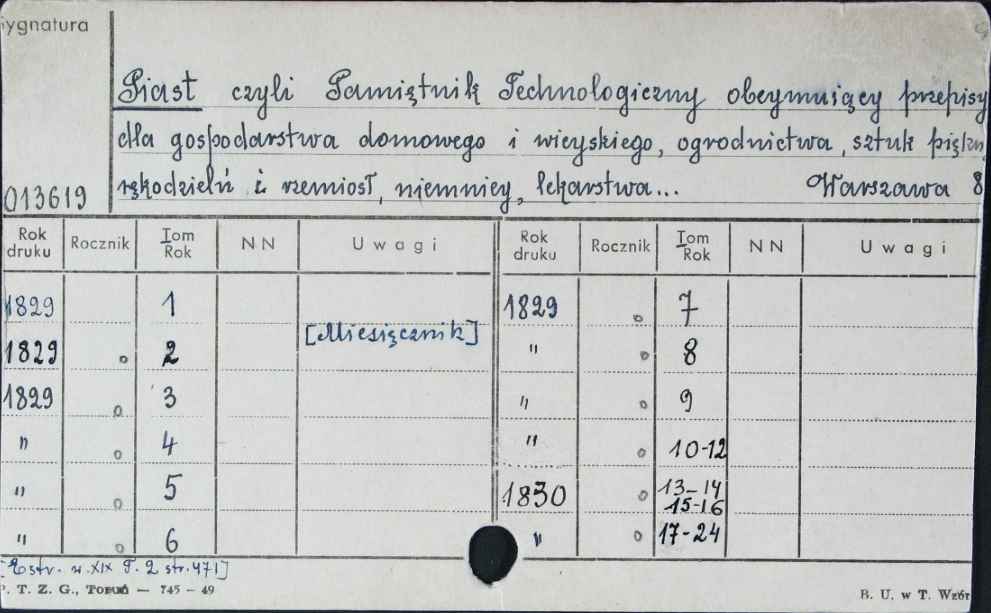 ygnatura
Piast czyli Pamiętnik Technologiczny obeymuiący przepisy
dla gospodarstwa domowego i wieyskiego, ogrodnictwa, sztuk piękn
rękodzieln i rzemiosł, niemniey, lekarstwa... Warszawa 8
013619
Rok druku Rocznik Tom Rok NN Uwagi Rok druku Rocznik Tom Rok NN Uwagi
1829 1 1829 o 7
[Miesięcznik]
1829 o 2 " o 8
1829 o 3 " o 9
" o 4 " o 10-12
" o 5 1830 o 13-14
15-16
" o 6 " o 17-24
[Estr. w. XIX T. 2 str. 471]
P. T. Z. G., Toruń — 745 — 49 B. U. w T. Wzór